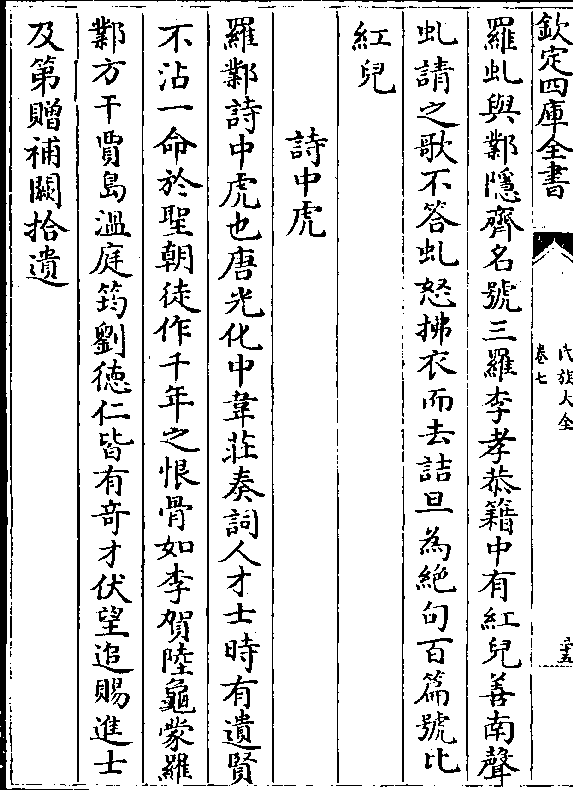 欽定四庫全書
氏族大全
卷七
三十五
羅虬與鄴隱齊名號三羅李孝恭籍中有紅兒善南聲
虬請之歌不答虬怒拂衣而去詰旦為絶句百篇號比
紅兒
詩中虎
羅鄴詩中虎也唐光化中韋莊奏詞人才士時有遺賢
不沾一命於聖朝徒作千年之恨骨如李賀陸龜蒙羅
鄴方干賈島溫庭筠劉德仁皆有竒才伏望追賜進士
及第贈補闕拾遺